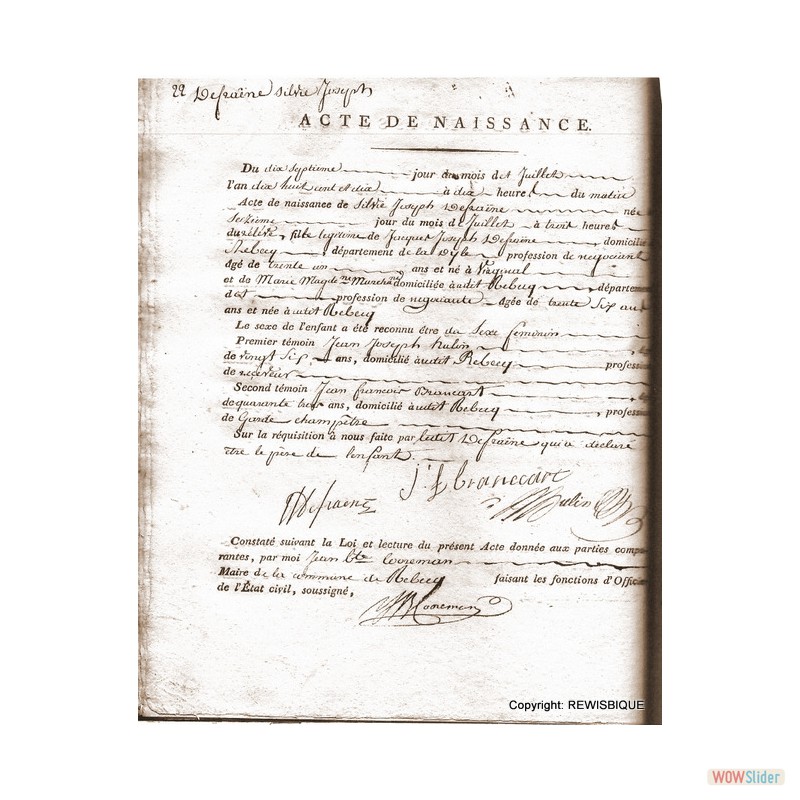 22 Defraêne Silvie Joseph
ACTE DE NAISSANCE.
Du dix septieme jour du mois de Juillet
l'an dix huit cent et dix à dix heures du matin
Acte de naissance de Silvie Joseph Defraêne née
seizieme jour du mois de Juillet à trois heures
fille legitime de Jacques Joseph Defraêne, domicilié
Rebecq, département de la Dyle, profession de negociant
âgé de trente un ans et né à
et de Marie domiciliée audit Rebecq départeme
dit profession de negociante âgée de trente Six ans
ans et née audit Rebecq
Le sexe de l'enfant a été reconnu être du Sexe feminin
Premier témoin Jean Joseph hulin
de vingt Six ans, domicilié audit Rebecq profess
de receveur
Second témoin Jean francois Brancart
de quarante trois ans, domicilié audit Rebecq, profess
de Garde champêtre
Sur la réquisition à nous faite par ledit Defraêne qui a déclaré
être le père de l'enfant.
J: f brancart
Defraene
Hulin
Constaté suivant la Loi et lecture du présent Acte donnée aux parties compa-
rantes, par moi Jean Bte Cooreman
Maire de la commune de Rebecq faisant les fonctions d'Offici
de l'État civil, soussigné,
JB Cooreman
Copyright: REWISBIQUE
WOWSlider